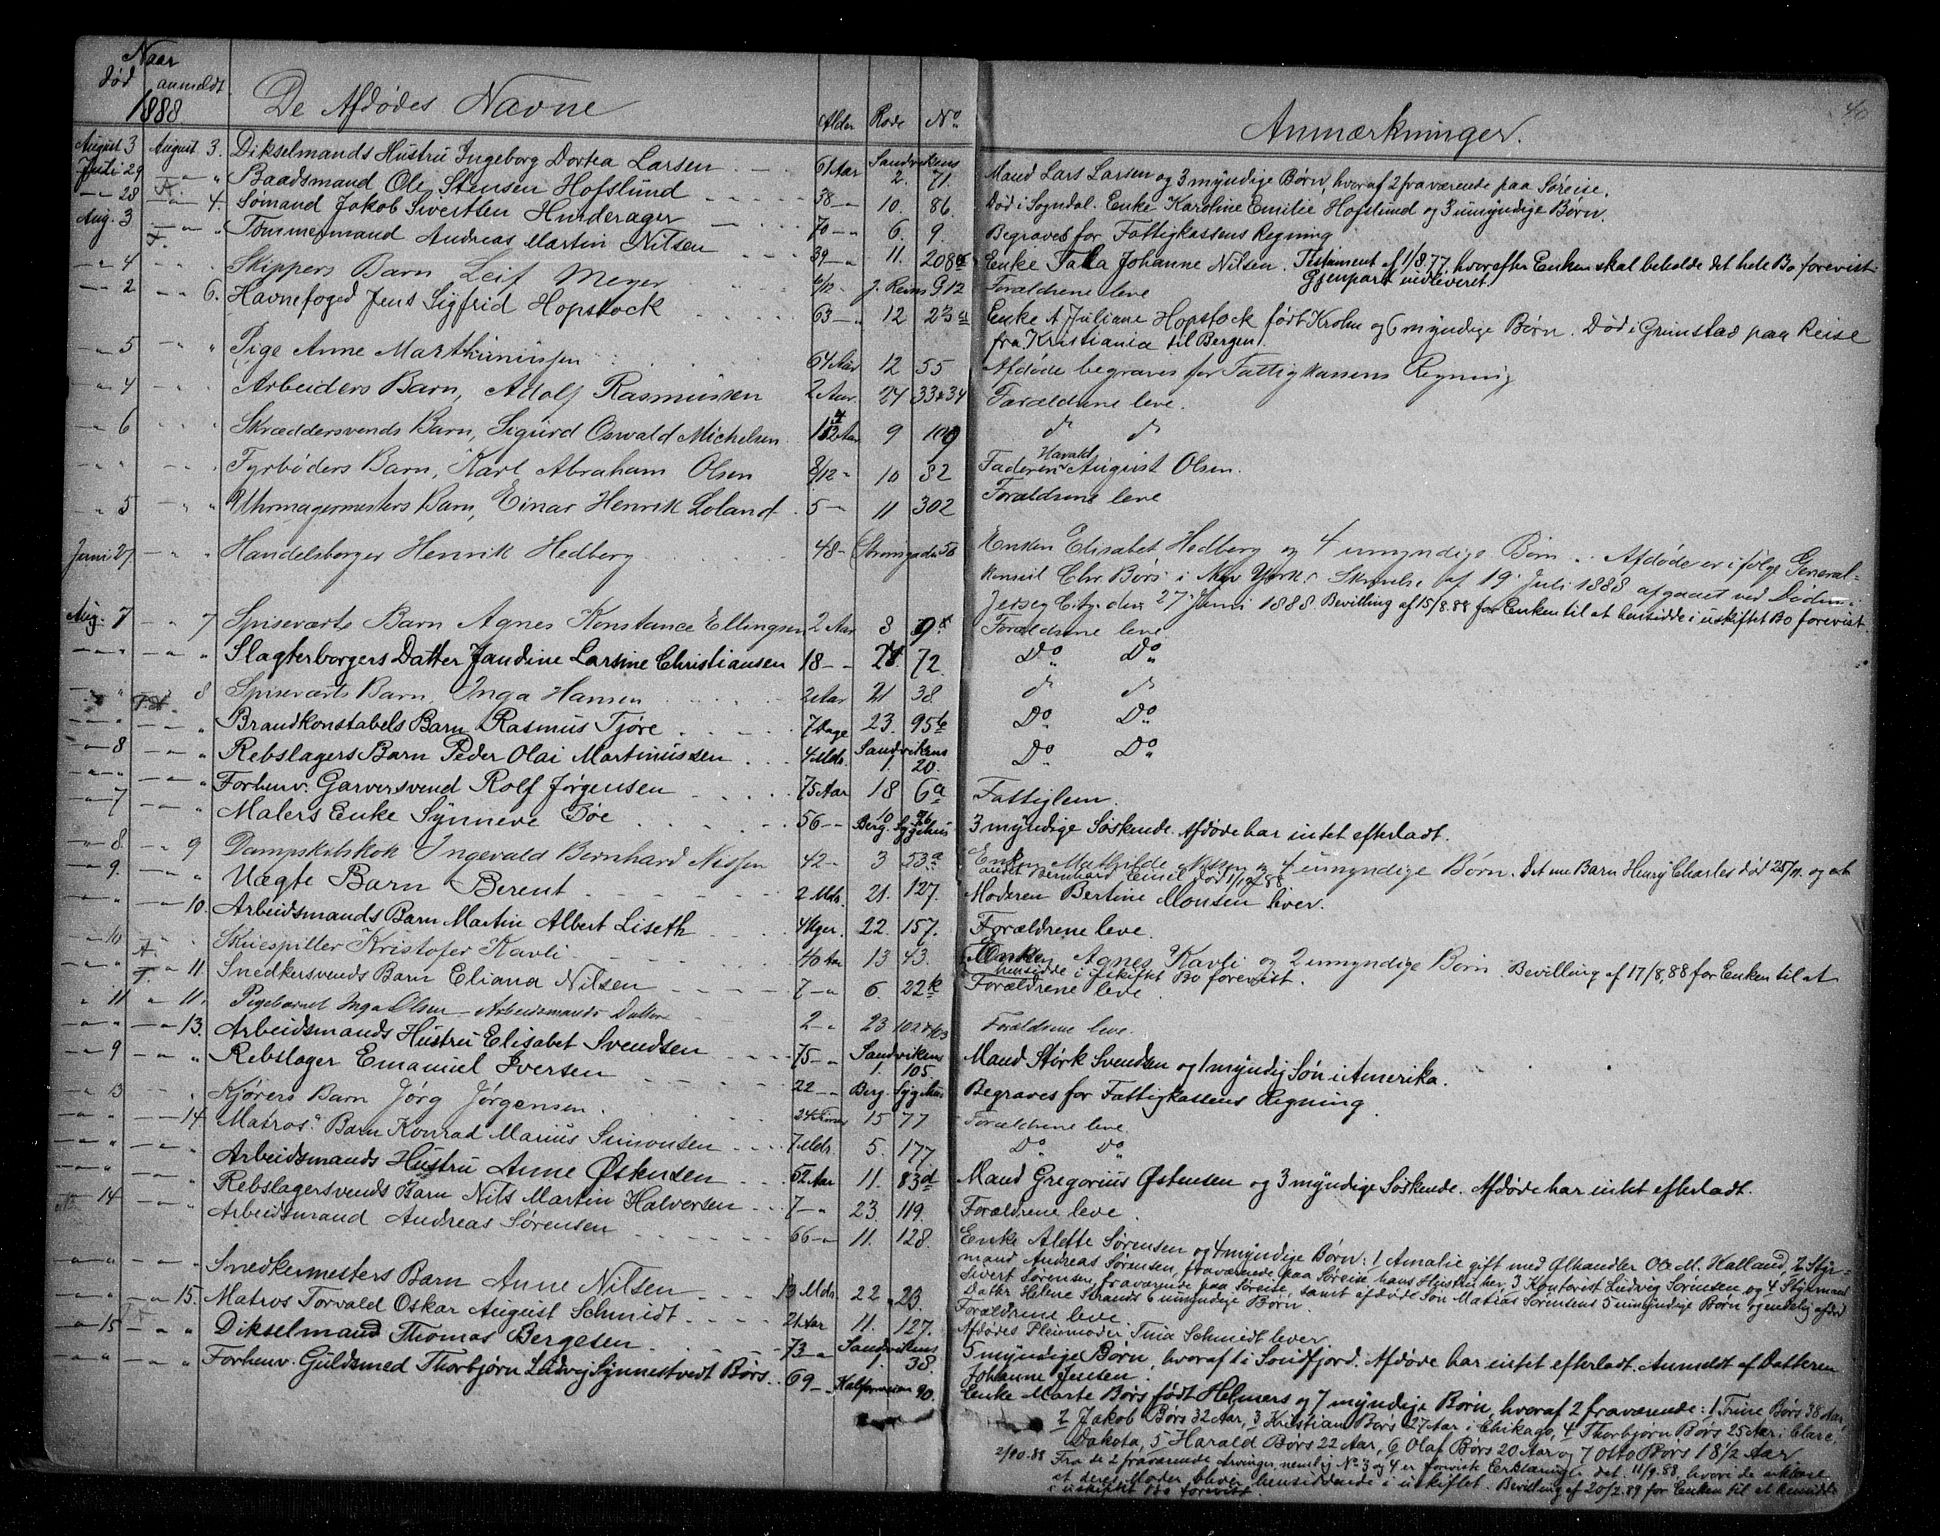 Naar
død anmeldt De Afdødes Navne Alder Rode No. Anmærkninger. 40
1888
August 3 August 3. Dikselmands Hustru Ingeborg Dortea Larsen 61 Aar Sandvikens 2. 71. Mand Lars Larsen og 3 myndige Børn, hvoraf 2 fraværende paa Søreise.
Juli 29 — " Baadsmand Ole Stensen Hofslund 38 — 10. 86. Død i Sogndal. Enke Karoline Emilie Hofslund og 3 umyndige Børn.
— 28 — 4. Sømand Jakob Sivertsen Hunderager 70 — 6. 9. Begraves for Fattigkassens Regning
Aug. 3 — " Tømmermand Andreas Martin Nilsen 39 — 11. 208 Enke Johanne Nilsen. Testament af 1/8.77, hvorefter Enken skal beholde det hele Bo forevist.
Gjenpart indleveret.
— 4 — " Skippers Barn Leif Meyer /12 - J. Reins G. 12 Forældrene leve
— 2 — 6. Havnefoged Jens Sigfrid Hopstock 63 — 12 Enke A Juliane Hopstock født Krohn og 6 myndige Børn. Død i Grimstad paa Reise
fra Kristiania til Bergen.
— 5 — " Pige Anne Marthinussen 64 Aar 12 55 Afdøde begraves for Fattigkassens Regning
— 4 — " Arbeiders Barn, Adolf Rasmussen 2 Aar 24 33 & 34 Forældrene leve.
— 6 — " Skræddersvends Barn, Sigurd Oswald Michelsen 9 109 d d
" " Fyrbøders Barn, Karl Abraham Olsen 8/12 - 10 82 Faderen Harald August Olsen.
" 5 — " Uhrmagermesters Barn, Einar Henrik Loland 5 - 11 302 Forældrene leve
Juni 27 — " Handelsborger Henrik Hedberg 48 - Strangaden 58 Enken Elisabet Hedberg og 4 umyndige Børn. Afdøde er ifølge General-
konsul Chr. Børs i New York's Skrivelse af 19 Juli 1888 afgaaet ved Døden i
Jersey City den 27 Juni 1888 Bevilling af 15/8.88 for Enken til at hensidde i uskiftet Bo forevist.
Aug. 7 — 7 Spiseværts Barn Agnes Konstance Ellingsen 2 Aar 8 9 Forældrene leve
— " Slagterborgers Datter Jandine Larsine Christiansen 18 — 72. Do Do
8 Spiseværts Barn, Inga Hansen 2 Aar 21 38 d d
— " Brandkonstabels Barn Rasmus Tjøre 7 Dage 23. 95b Do Do
— 8 — " Rebslagers Barn Peder Olai Martinussen 4 Mdr. Sandvikens 1. 20. Do Do
— " Forhenv. Garversvend Rolf Jørgensen 75 Aar 18 6a Fattiglem.
— 7 — " Malers Enke Synneve Bøe 56 — Berg. Sygehus 3 myndige Søskende. Afdøde har intet efterladt.
— 8 — 9 Dampskibskok Ingevald Bernhard Nissen 42 — 3 53a Enken Mathilde Nissen og 4 umyndige Børn. Det ene Barn Henry Charles død 25/11. og et
andet Bernhard Emil død
— 9. — " Uægte Barn Berent 2 Mdr. 21. 127. Moderen Bertine Monsen lever.
— " 10. Arbeidsmands Barn Martin Albert Liseth 4 Uger. 22. 157. Forældrene leve.
— 10 Skuespiller Kristofer Kavli 40 Aar 13 43. Enken Agnes Kavli og 2 umyndige Børn. Bevilling af 17/8.88 for Enken til at
hensidde i uskiftet Bo forevist.
— " 11 Snedkersvends Barn Eliana Nilsen 7 — 6. 22 Forældrene leve
" 11 " 11. Pigebarnet Inga Olsen Arbeidsmands Datter 2 — 23 102 & 103 Forældrene leve.
— " — 13. Arbeidsmands Hustru Elisabet Svendsen 75 — Sandvikens 1. 105 Mand Størk Svendsen og 1 myndig Søn i Amerika.
— 9 — " Rebslager Emanuel Iversen 22 — Berg. Sygehus Begraves for Fattigkassens Regning.
" 13 " Kjørers Barn Jørg Jørgensen 24 Timer 15 77 Forældrene leve.
" — 14. Matros' Barn Konrad Marius Simonsen 7 Mdr. 5. 177 Do Do
— " Arbeidsmands Hustru Anne Østensen 52 Aar 11. 83d Mand Gregorius Østensen og 3 myndige Søskende. Afdøde har intet efterladt.
— " Rebslagersvends Barn Nils Martin Halversen 7 — 23. 119. Forældrene leve.
14 — " Arbeidsmand Andreas Sørensen 66 — 11. 128. Enke Alette Sørensen og 4 myndige Børn: 1 Amalie gift med Ølhandler O. M. Halland, 2 Styr-
mand Andreas Sørensen, fraværende paa Søreise hans Hustru her, 3 Kontorist Ludvig Sørensen og 4 Styrmand
Sivert Sørensen, fraværende paa Søreise, samt afdøde Søn Matias Sørensens 5 umyndige Børn og endelig afdød
Datter Helene Strands 6 umyndige Børn.
— " Snedkermesters Barn Anne Nilsen 13 Mdr. 22 23. Forældrene leve
— " 15. Matros Torvald Oskar August Schmidt 21 Aar 11. 127. Afdødes Pleiemoder Tina Schmidt lever
— 15 — " Dikselmand Thomas Bergesen 73 — Sandvikens 1. 38. 5 myndige Børn, hvoraf 1 i Søndfjord. Afdøde har intet efterladt. Anmeldt af Datteren
Johanne Jensen.
— " Forhenv. Guldsmed Thorbjørn Ludvig Synnestvedt Børs 69 — Kalfarveien 90. Enke Marte Børs født Helmers og 7 myndige Børn, hvoraf 2 fraværende: 1 Trine Børs 38 Aar,
2 Jakob Børs 32 Aar, 3 Kristian Børs 27 Aar i Chikago, 4 Thorbjørn Børs 25 Aar i Clare,
Dakota, 5 Harald Børs 22 Aar, 6 Olaf Børs 20 Aar og 7 Otto Børs 18 1/2 Aar
2/10.88 Fra de 2 fraværende Arvinger, nemlig No 3 og 4 er forevist Erklæring det. 11/9.88, hvori de erklære
at deres Moder bliver hensiddende i uskiftet. Bevilling af 20/2.89 for Enken til at hensidde
i uskiftet Bo forevist.